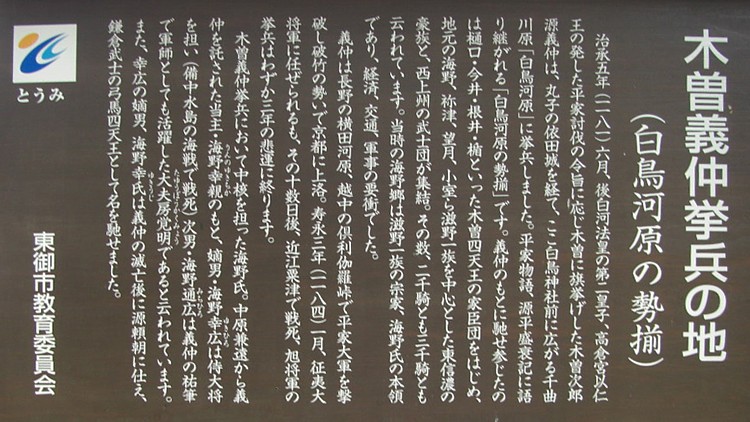 木曽義仲挙兵の地
(白鳥河原の勢揃)
治承五年(一一八一)六月、後白河法皇の第二皇子、高倉宮以仁
王の発した平家討伐の令旨に応じ木曽に旗挙げした木曽次郎
源義仲は、丸子の依田城を経て、ここ白鳥神社前に広がる千曲
川原「白鳥河原」に挙兵しました。平家物語、源平盛衰記に語
り継がれる「白鳥河原の勢揃」です。義仲のもとに馳せ参じたの
は樋口・今井・根井・楯といった木曽四天王の家臣団をはじめ、
地元の海野、祢津、望月、小室ら滋野一族を中心とした東信濃の
豪族と、西上州の武士団が集結。その数、二千騎とも三千騎とも
云われています。当時の海野郷は滋野一族の宗家、海野氏の本領
であり、経済、交通、軍事の要衝でした。
義仲は長野の横田河原、越中の倶利伽羅峠で平家大軍を撃
破し破竹の勢いで京都に上洛。寿永三年(一一八四)一月、征夷大
将軍に任ぜられるも、その十数日後、近江粟津で戦死、旭将軍の
挙兵はわずか三年の悲運に終ります。
木曽義仲挙兵において中核を担った海野氏。中原兼遠から義
仲を託された当主・海野幸親のもと、嫡男・海野幸広は侍大将
を担い(備中水島の海戦で戦死)次男・海野通広は義仲の祐筆
で軍師としても活躍した大夫房覚明であると云われています。
また、幸広の嫡男、海野幸氏は義仲の滅亡後に源頼朝に仕え、
鎌倉武士の弓馬四天王として名を馳せました。
東御市教育委員会
とうみ